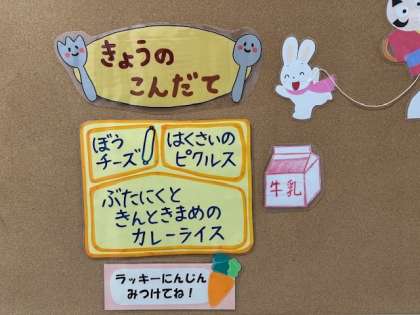 きょうの
こんだて
ぼう
チーズ
はくさいの
ピクルス
ぶたにくと
きんときまめの
カレーライス
牛乳
ラッキーにんじん
みつけてね!